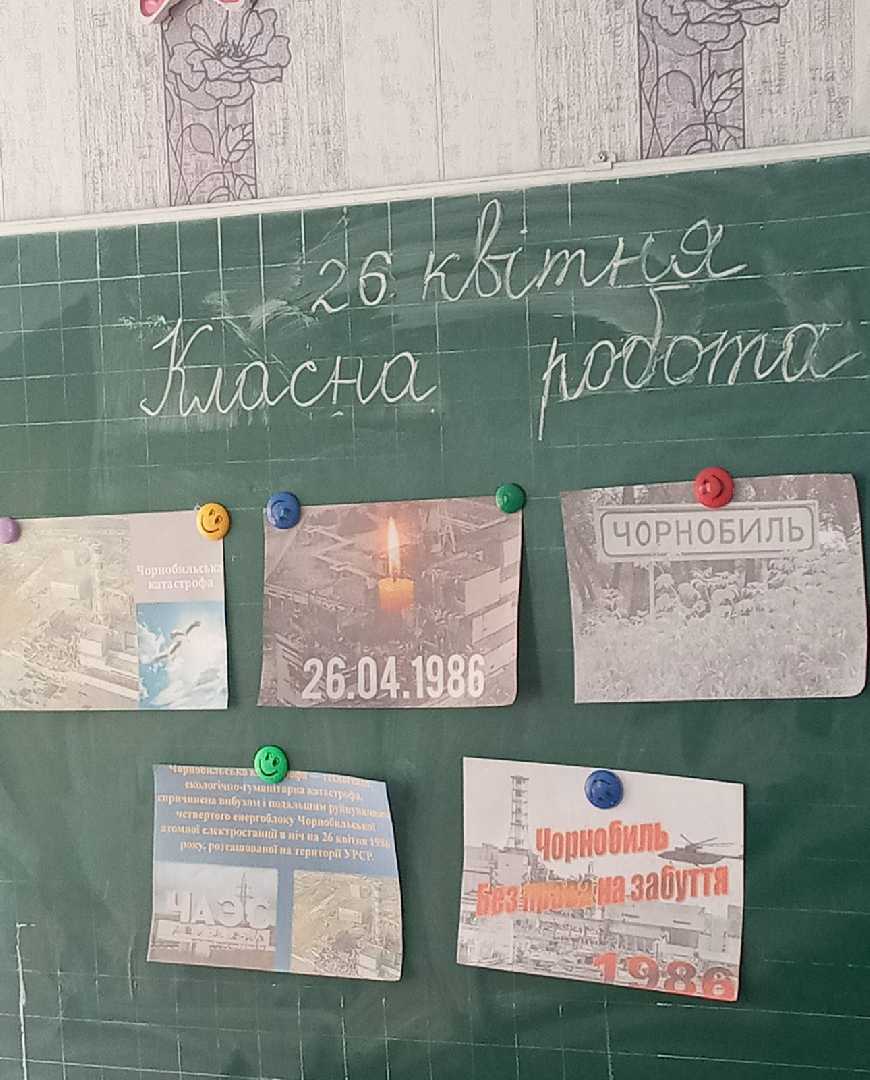 26 квітня
Класна робота
Чорнобильська
катастрофа
26.04.1986
ЧОРНОБИЛЬ
Чорнобильська
екологічно-гуманітарна катастрофа,
спричинена вибухом і подальшим руйнуванням
четвертого енергоблоку Чорнобильської
атомної електростанції в ніч на 26 квітня 1986
року, розташованої на території УРСР.
ЧАЭС
Чорнобиль
Без права на забуття
1986